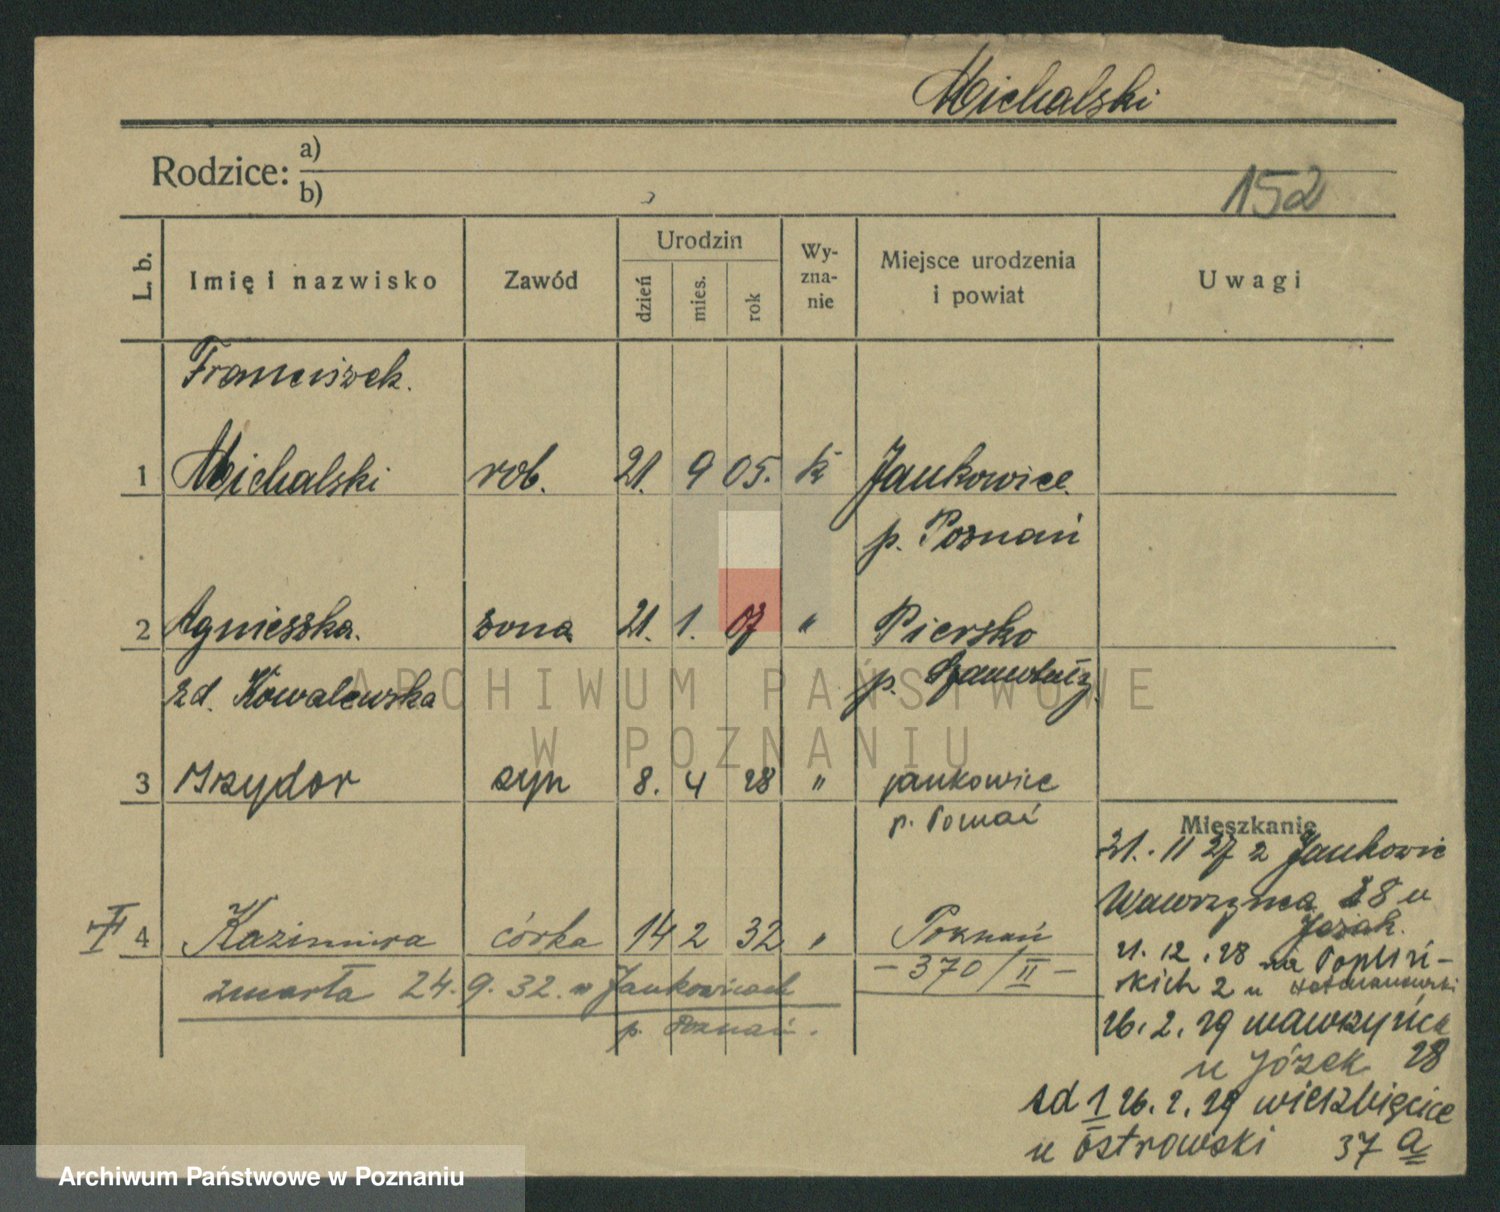 Michalski
Rodzice:
a)
b)
152
L. b.
Imię i nazwisko
Zawód
Urodzin
dzień
mies.
rok
Wy-
zna-
nie
Miejsce urodzenia
i powiat
Uwagi
Franciszek.
1 Michalski rob. 21. 9 05. k Jankowice.
p. Poznań
2 Agnieszka. żona 21. 1. 07 " Piersko
zd. Kowalewska p.
3 Izydor syn 8. 4 28 " jankowice
p. Poznań
4 Kazimiera córka 14 2 32 " Poznań
– 370/II –
zmarła 24. 9. 32. w Jankowicach
p. Poznań.
Mieszkanie
21. 11 27 z Jankowic
Wawrzyna 28 u
21. 12. 28 na Popliń-
skich 2 u
26. 2. 29 wawrzyńca
u Józek 28
sd 1 26. 2. 29 wierzbięcice
u Ostrowski 37 a
ARCHIWUM PAŃSTWOWE
W POZNANIU
Archiwum Państwowe w Poznaniu